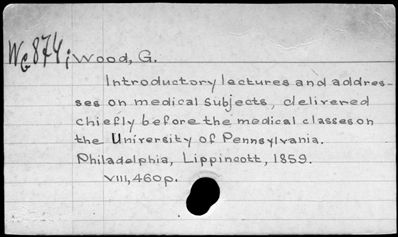 Wc874; Wood, G.
Introductory lectures and addres-
ses on medical subjects, delivered
chiefly before the medical classes on
the University of Pennsylvania.
Philadelphia, Lippincott, 1859.
VIII, 460p.